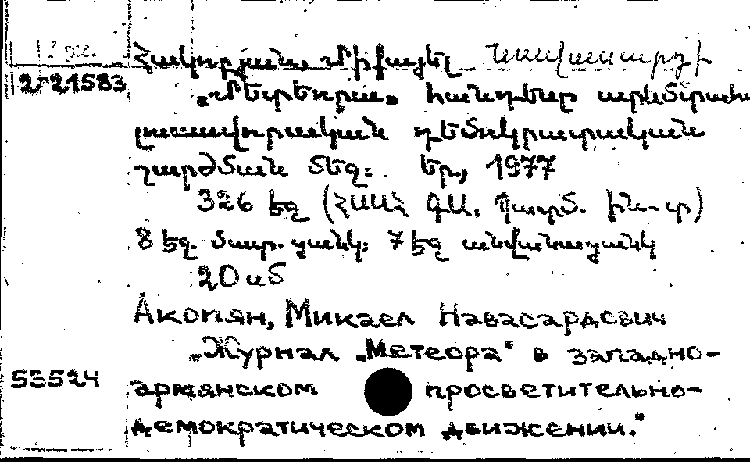 Հակոբյան, Միքայել Նավասարդի
2-21583
„Մետեորա" հանդեսը արևմտահայ
լուսավորական դեմոկրատական
շարժման մեջ: Եր., 1977
326 էջ (ՀՍՍՀ ԳԱ. Պատմ. ին-տ)
8 էջ. մատ. ցանկ: 7 էջ անվանացանկ
20 սմ
Акопян, Микаел Навасардович
„Журнал „Метеора" в западно-
53524
армянском просветительно-
демократическом движении."